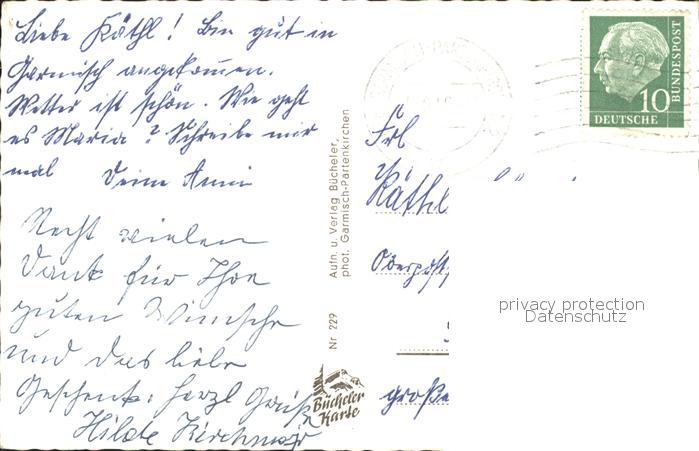 Liebe Käthl! Bin gut in
Garmisch angekommen.
Wetter ist schön. Wie geht
es Maria? Schreibe mir
mal Deine Anni
Recht vielen
Dank für Ihre
guten Wünsche
und das liebe
Geschenk. Herzl Grüße
Hilde
Nr 229
Aufn. u. Verlag Bücheler,
phot. Garmisch-Partenkirchen
Bücheler
Karte
DEUTSCHE
BUNDESPOST
10
Frl
Käthl
privacy protection
Datenschutz